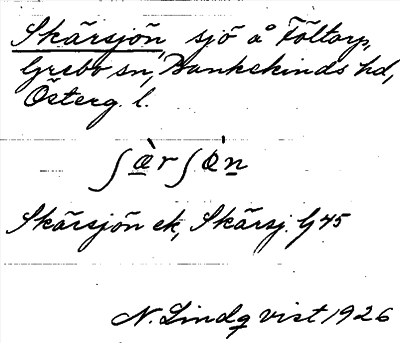 Skärsjön sjö å Föltorp,
Grebo sn, Bankekinds hd,
Österg. l.
ʃæ̀rʃøn
Skärsjön ek, Skärsj. G 45
N. Lindqvist 1926